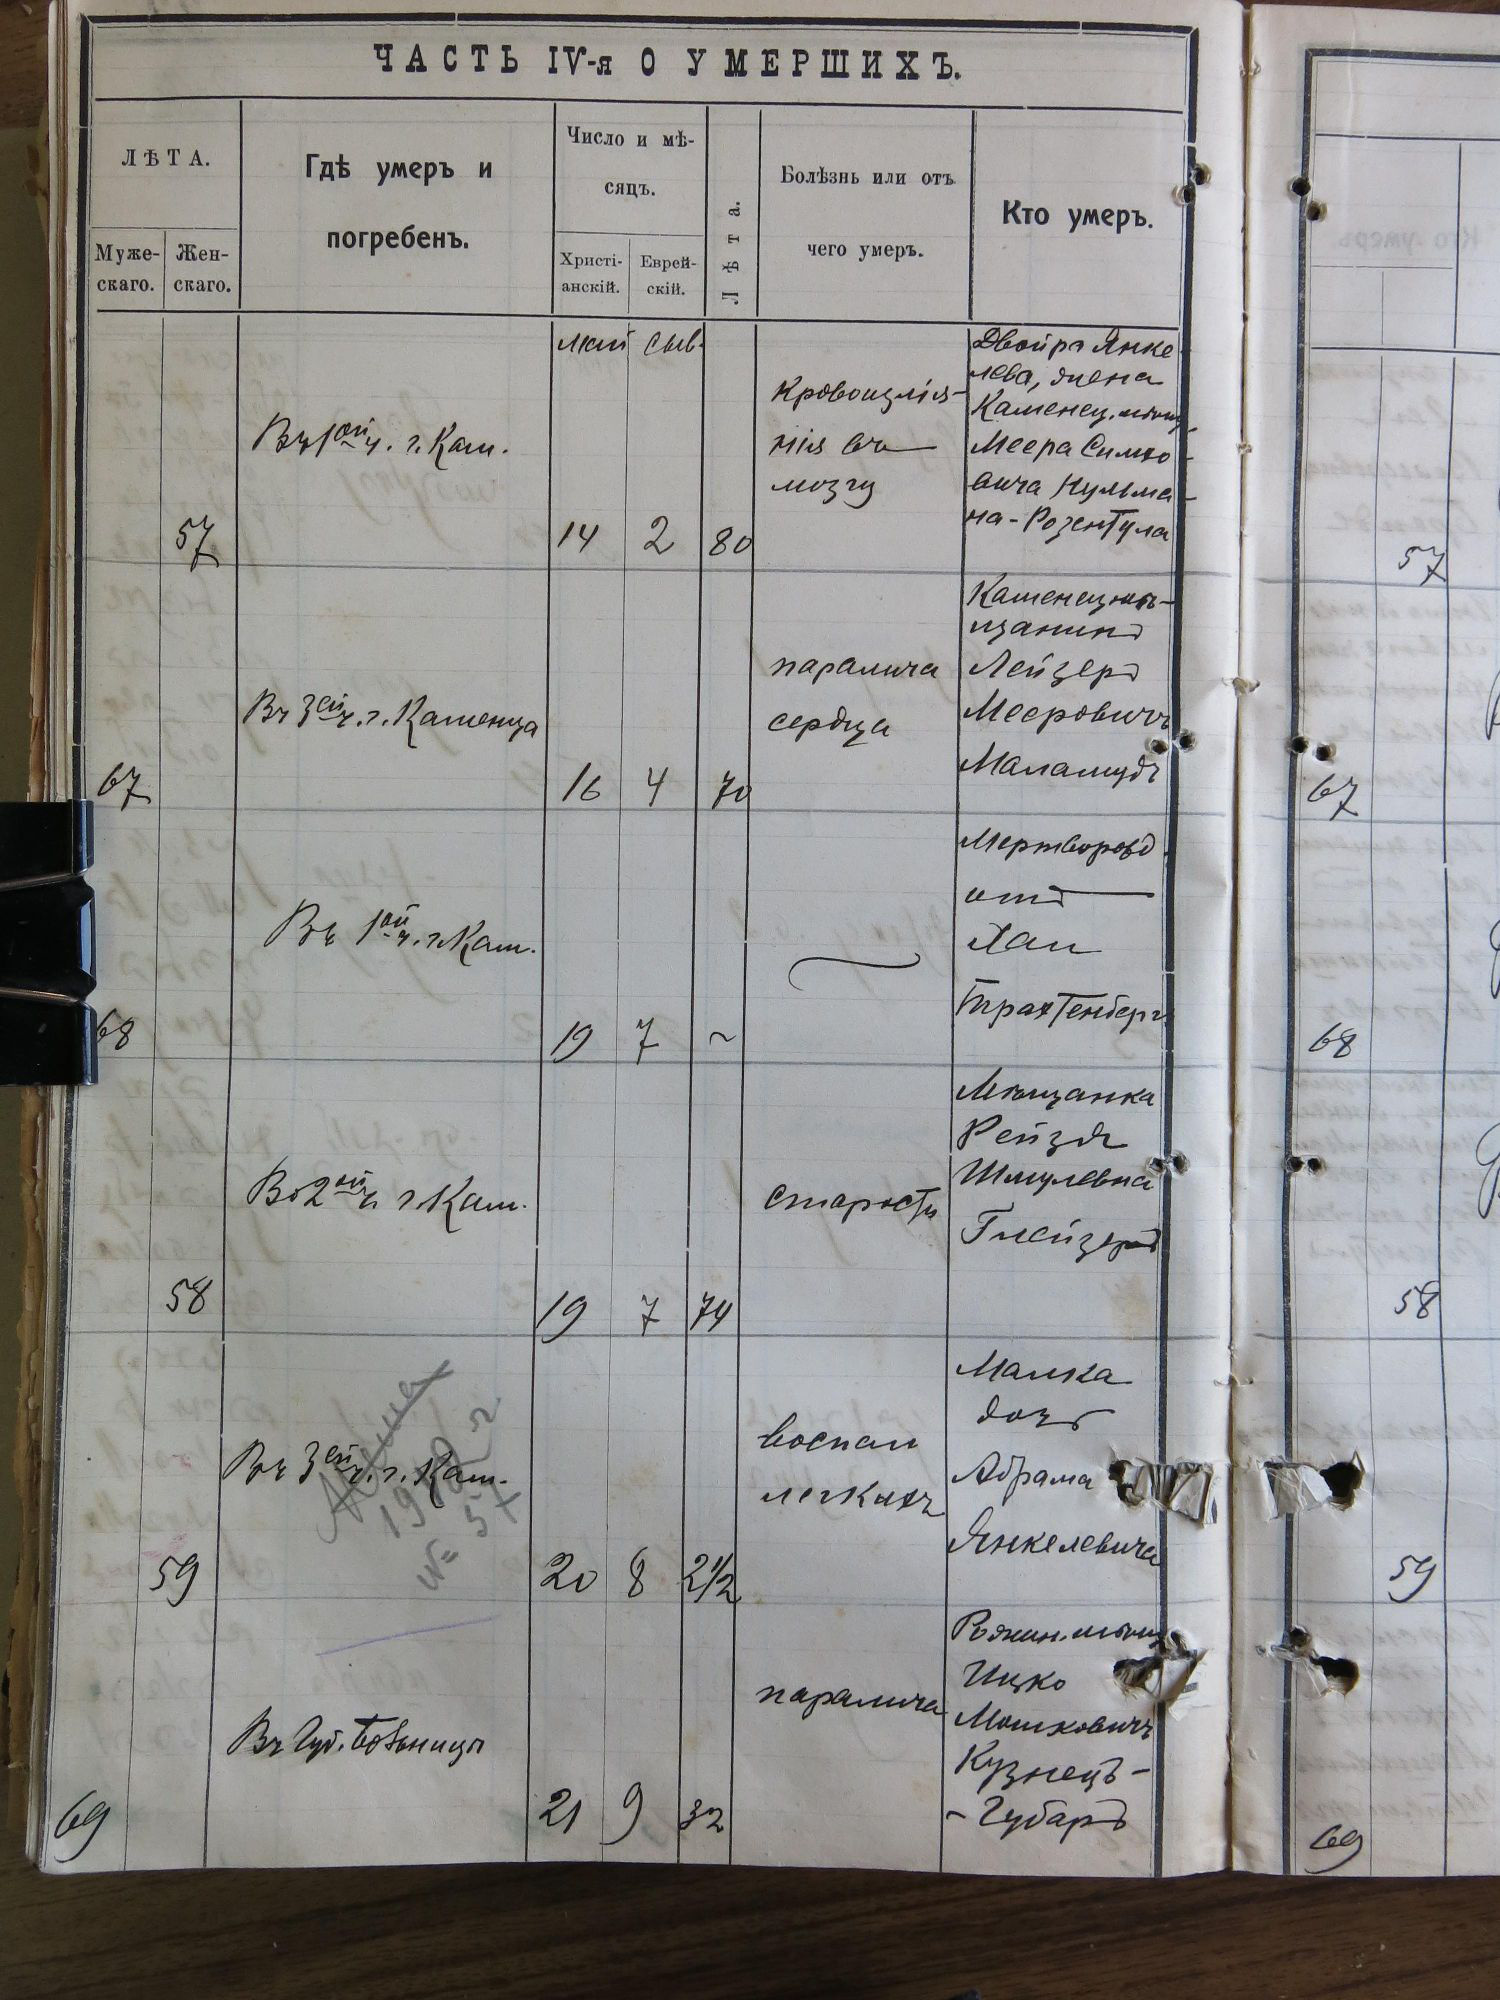 ЧАСТЬ IV-я О УМЕРШИХЪ.
ЛѢТА.
Муже-
скаго.
Жен-
скаго.
Гдѣ умеръ и
погребенъ.
Число и мѣ-
сяцъ.
Христі-
анскій.
Еврей-
скій.
Лѣта.
Болѣзнь или отъ
чего умеръ.
Кто умеръ.
май Сыв.
57
Въ 1ой ч. г. Кам.
14 2 80
Кровоизлія-
нія въ
мозгу
Двойра Янке-
лева, жена
Каменец. мѣщ.
Меера Симхо-
вича Нульма-
на-Розентула
67
Въ 3ей ч. г. Каменца
16 4 70
паралича
сердца
Каменец. мѣ-
щанинъ
Лейзеръ
Мееровичъ
Маламудъ
68
Въ 1ой ч. г. Кам.
19 7 ~
Мертворожд.
отъ
Хаи
Трахтенбергъ
58
Во 2ой ч. г. Кам.
19 7 74
старости
Мѣщанка
Рейзя
Шмулевна
Глейзеръ
59
Въ 3ей ч. г. Кам.
№ 57
20 8 2 1/2
воспал.
легкихъ
Малка
дочь
Абрама
Янкелевича
69
Въ Губ. больницы
21 9 32
паралича
мѣщ.
Ицко
Мошковичъ
Кузнецъ-
-Губаръ
57
67
68
58
59
69